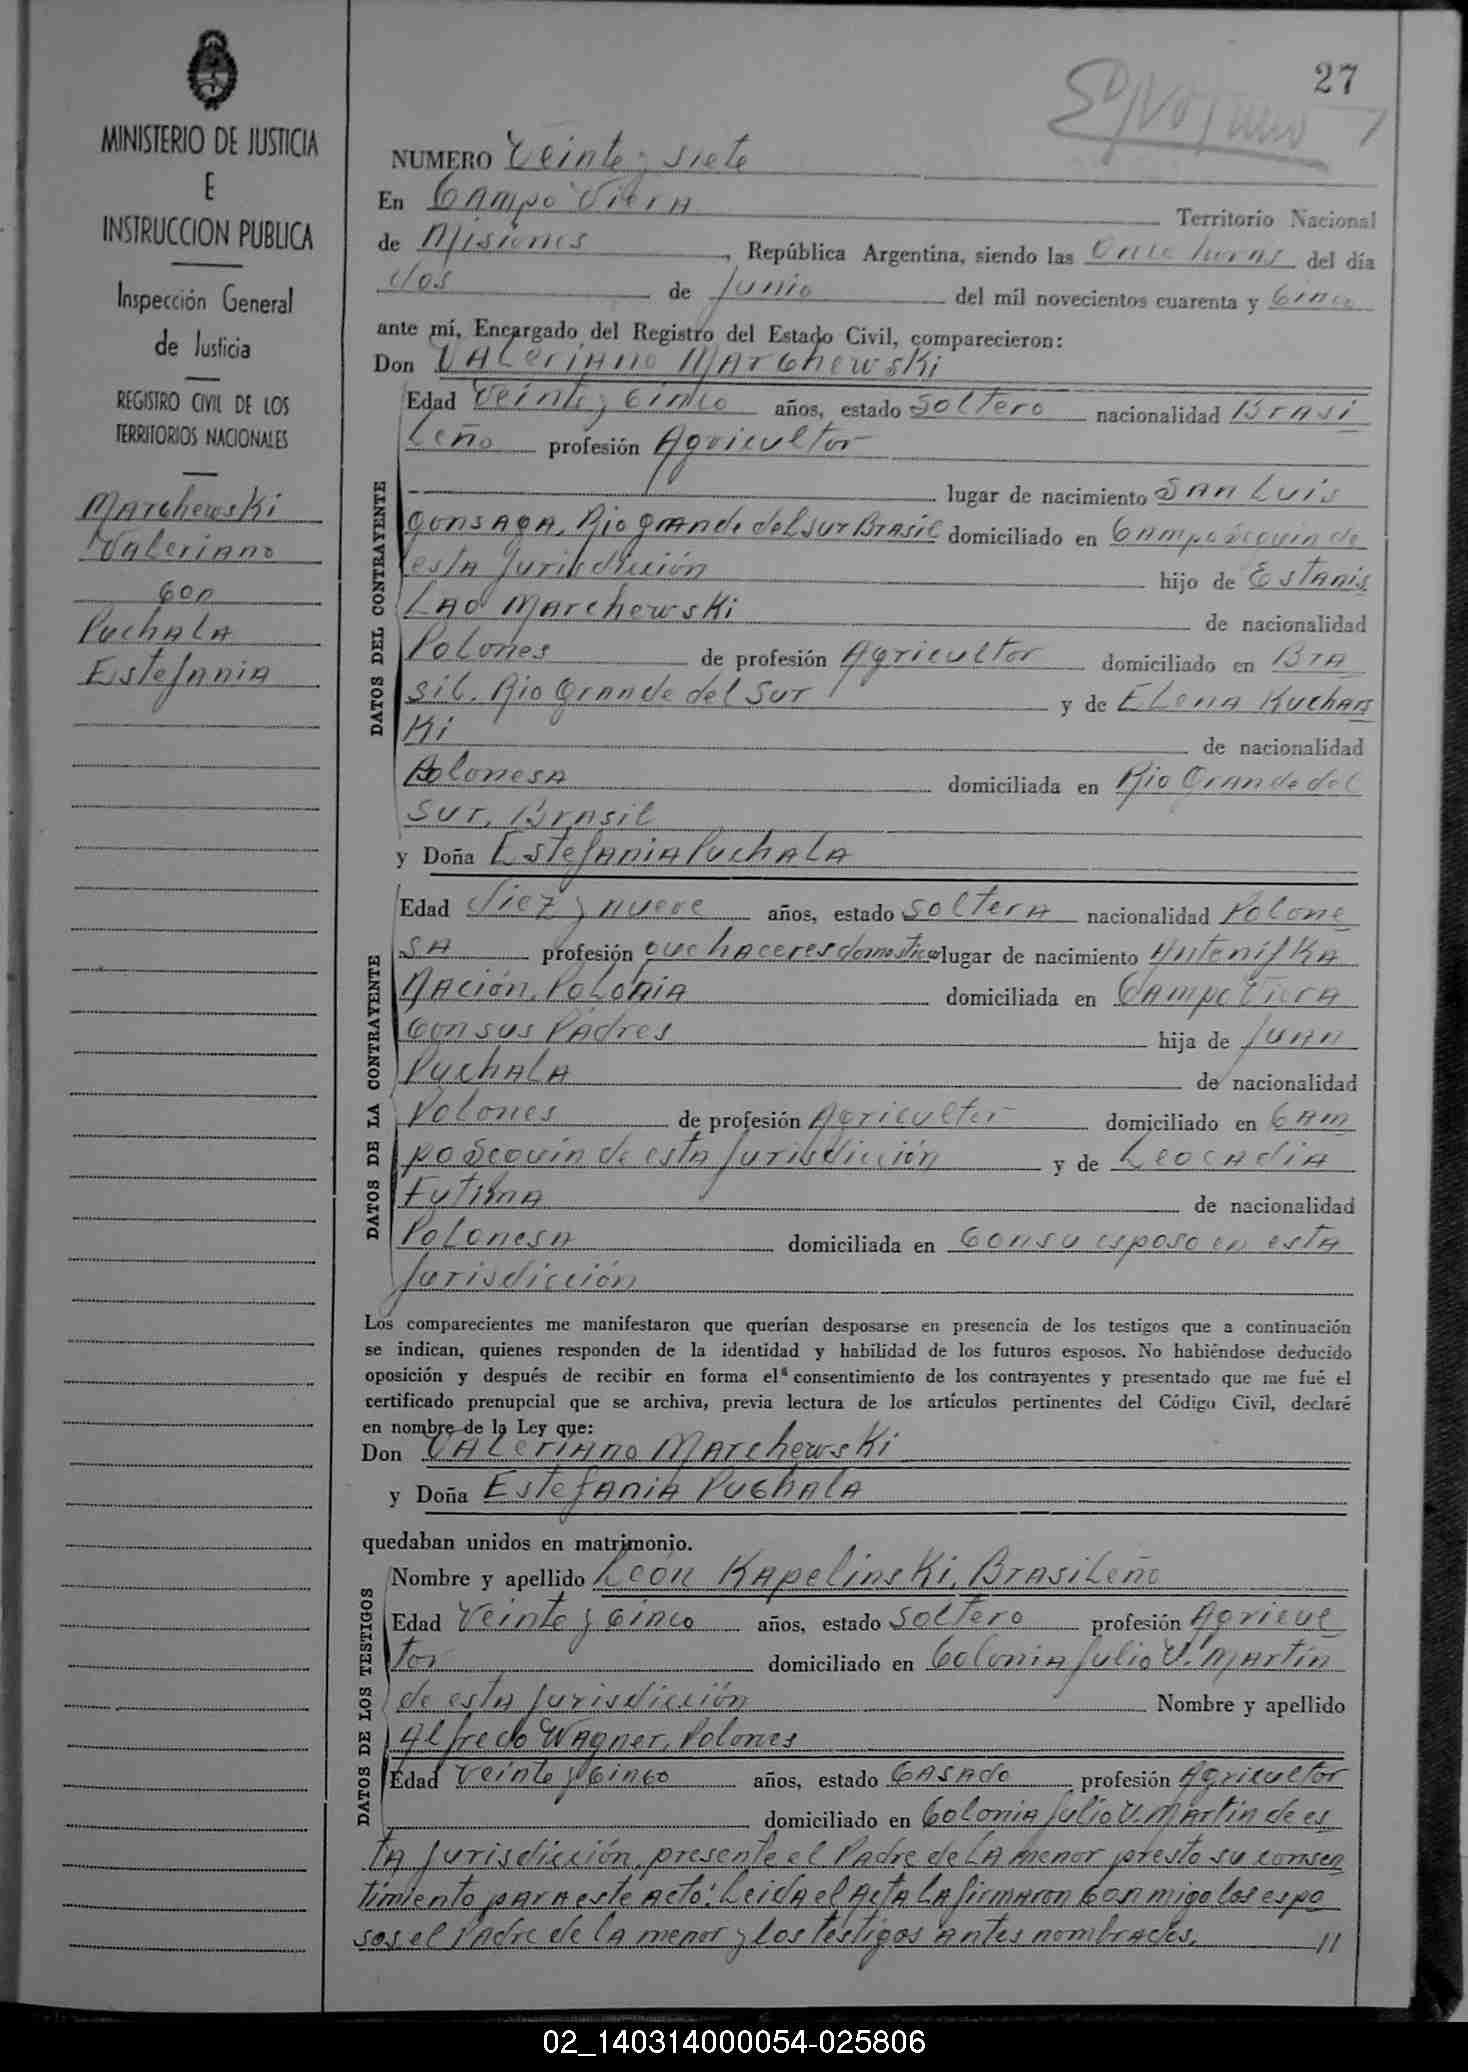 27
MINISTERIO DE JUSTICIA
E
INSTRUCCION PUBLICA
Inspección General
de Justicia
REGISTRO CIVIL DE LOS
TERRITORIOS NACIONALES
Marchewski
Valeriano
con
Puchala
Estefania
NUMERO Veinte y siete
En Campo Viera Territorio Nacional
de Misiones, República Argentina, siendo las Once horas del día
dos de Junio del mil novecientos cuarenta y Cinco
ante mí, Encargado del Registro del Estado Civil, comparecieron:
Don Valeriano Marchewski
DATOS DEL CONTRAYENTE
Edad Veinte y cinco años, estado Soltero nacionalidad Brasi
leño profesión Agricultor
lugar de nacimiento San Luis
Gonsaga, Rio Grande del Sur Brasil domiciliado en Campo Seguin de
esta Jurisdicción hijo de Estanis
lao Marchewski de nacionalidad
Polones de profesión Agricultor domiciliado en Bra
sil. Rio Grande del Sur y de Elena Kuchars
Ki de nacionalidad
Polonesa domiciliada en Rio Grande del
Sur, Brasil
y Doña Estefania Puchala
DATOS DE LA CONTRAYENTE
Edad diez y nueve años, estado Soltera nacionalidad Polone
sa profesión quehaceres domesticos lugar de nacimiento
Nación, Polonia domiciliada en Campo Viera
Con sus Padres hija de Juan
Puchala de nacionalidad
Polones de profesión Agricultor domiciliado en Cam
po Seguin de esta Jurisdicción y de Leocadia
Futima de nacionalidad
Polonesa domiciliada en Con su esposo en esta
Jurisdicción
Los comparecientes me manifestaron que querían desposarse en presencia de los testigos que a continuación
se indican, quienes responden de la identidad y habilidad de los futuros esposos. No habiéndose deducido
oposición y después de recibir en forma el consentimiento de los contrayentes y presentado que me fué el
certificado prenupcial que se archiva, previa lectura de los artículos pertinentes del Código Civil, declaré
en nombre de la Ley que:
Don Valeriano Marchewski
y Doña Estefania Puchala
quedaban unidos en matrimonio.
DATOS DE LOS TESTIGOS
Nombre y apellido León Kapelinski, Brasileño
Edad Veinte y cinco años, estado Soltero profesión Agricul
tor domiciliado en Colonia Julio U. Martin
de esta Jurisdicción Nombre y apellido
Alfredo Wagner, Polones
Edad Veinte y Cinco años, estado Casado profesión Agricultor
domiciliado en Colonia Julio U. Martin de es
ta Jurisdicción, presente el Padre de la menor presto su consen
timiento para este acto: Leida el Acta La firmaron Conmigo los espo
sos el Padre de la menor y los testigos antes nombrados. //
02_140314000054-025806